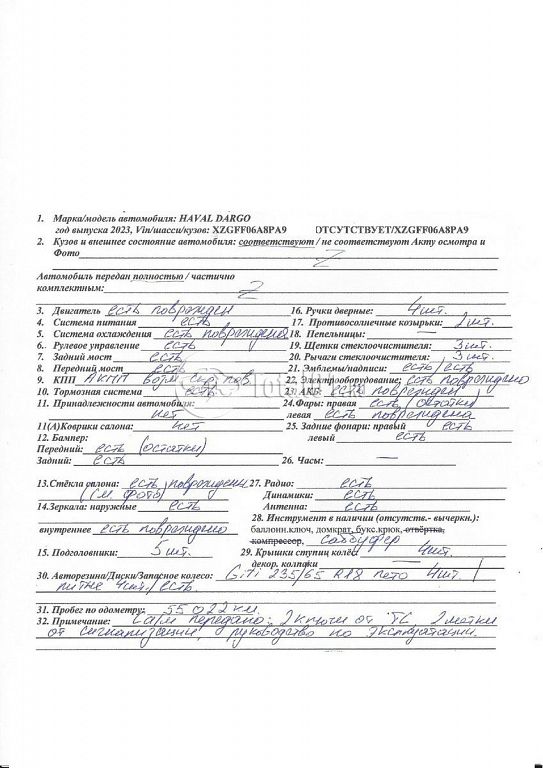 1. Марка/модель автомобиля: HAVAL DARGO
год выпуска 2023, Vin/шасси/кузов: XZGFF06A8PA9 ОТСУТСТВУЕТ/XZGFF06A8PA9
2. Кузов и внешнее состояние автомобиля: соответствуют / не соответствуют Акту осмотра и
Фото
Автомобиль передан полностью / частично
комплектным:
3. Двигатель есть поврежден
4. Система питания есть
5. Система охлаждения есть повреждена
6. Рулевое управление есть
7. Задний мост есть
8. Передний мост есть
9. КПП АКПП
10. Тормозная система есть
11. Принадлежности автомобиля:
нет
11(А)Коврики салона: нет
12. Бампер:
Передний: есть (остатки)
Задний: есть
13.Стёкла салона: есть повреждены
(см фото)
14.Зеркала: наружные есть
внутреннее есть повреждено
15. Подголовники: 5 шт.
16. Ручки дверные: 4 шт.
17. Противосолнечные козырьки: 2 шт.
18. Пепельницы: —
19. Щетки стеклоочистителя: 3 шт.
20. Рычаги стеклоочистителя: 3 шт.
21. Эмблемы/надписи: есть/есть
22. Электрооборудование: есть повреждено
23. АКБ: есть поврежден
24.Фары: правая есть (остатки)
левая есть повреждена
25. Задние фонари: правый есть
левый есть
26. Часы: —
27. Радио: есть
Динамики: есть
Антенна: есть
28. Инструмент в наличии (отсутств.- вычеркн.):
баллонн.ключ, домкрат, букс.крюк, отвёртка,
компрессор, сабвуфер
29. Крышки ступиц колёс 4 шт.
декор. колпаки —
30. Авторезина/Диски/Запасное колесо: Giti 235/65 R18 лето 4 шт. /
литые 4 шт. / есть
31. Пробег по одометру: 55 022 км.
32. Примечание: С а/м передано: 2 ключи от ТС 2 метки
от сигнализации, руководство по эксплуатации.